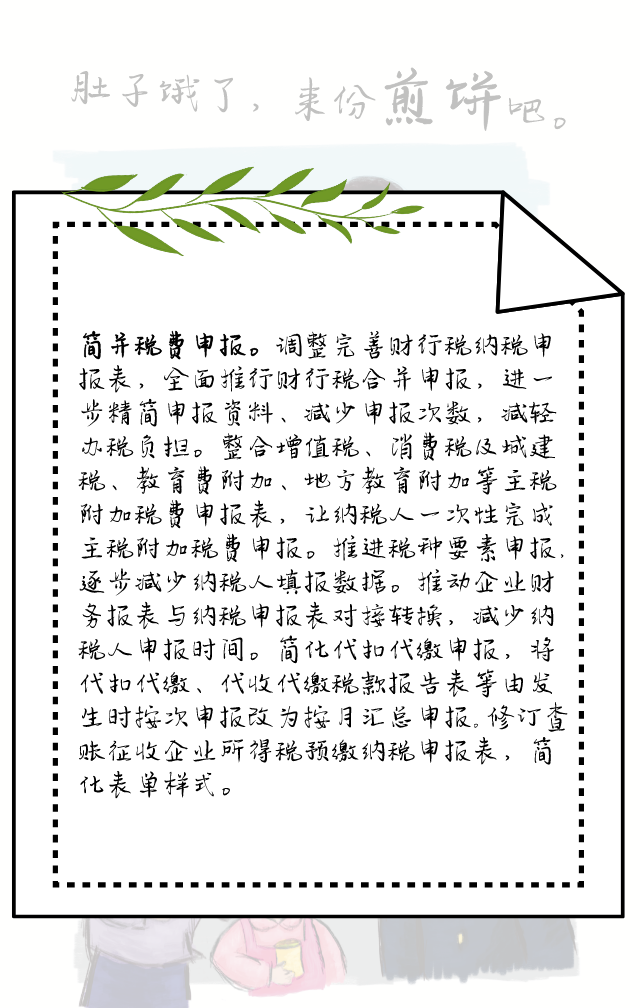 肚子饿了，来份煎饼吧。
简并税费申报。调整完善财行税纳税申
报表，全面推行财行税合并申报，进一
步精简申报资料、减少申报次数，减轻
办税负担。整合增值税、消费税及城建
税、教育费附加、地方教育附加等主税
附加税费申报表，让纳税人一次性完成
主税附加税费申报。推进税种要素申报，
逐步减少纳税人填报数据。推动企业财
务报表与纳税申报表对接转换，减少纳
税人申报时间。简化代扣代缴申报，将
代扣代缴、代收代缴税款报告表等由发
生时按次申报改为按月汇总申报。修订查
账征收企业所得税预缴纳税申报表，简
化表单样式。